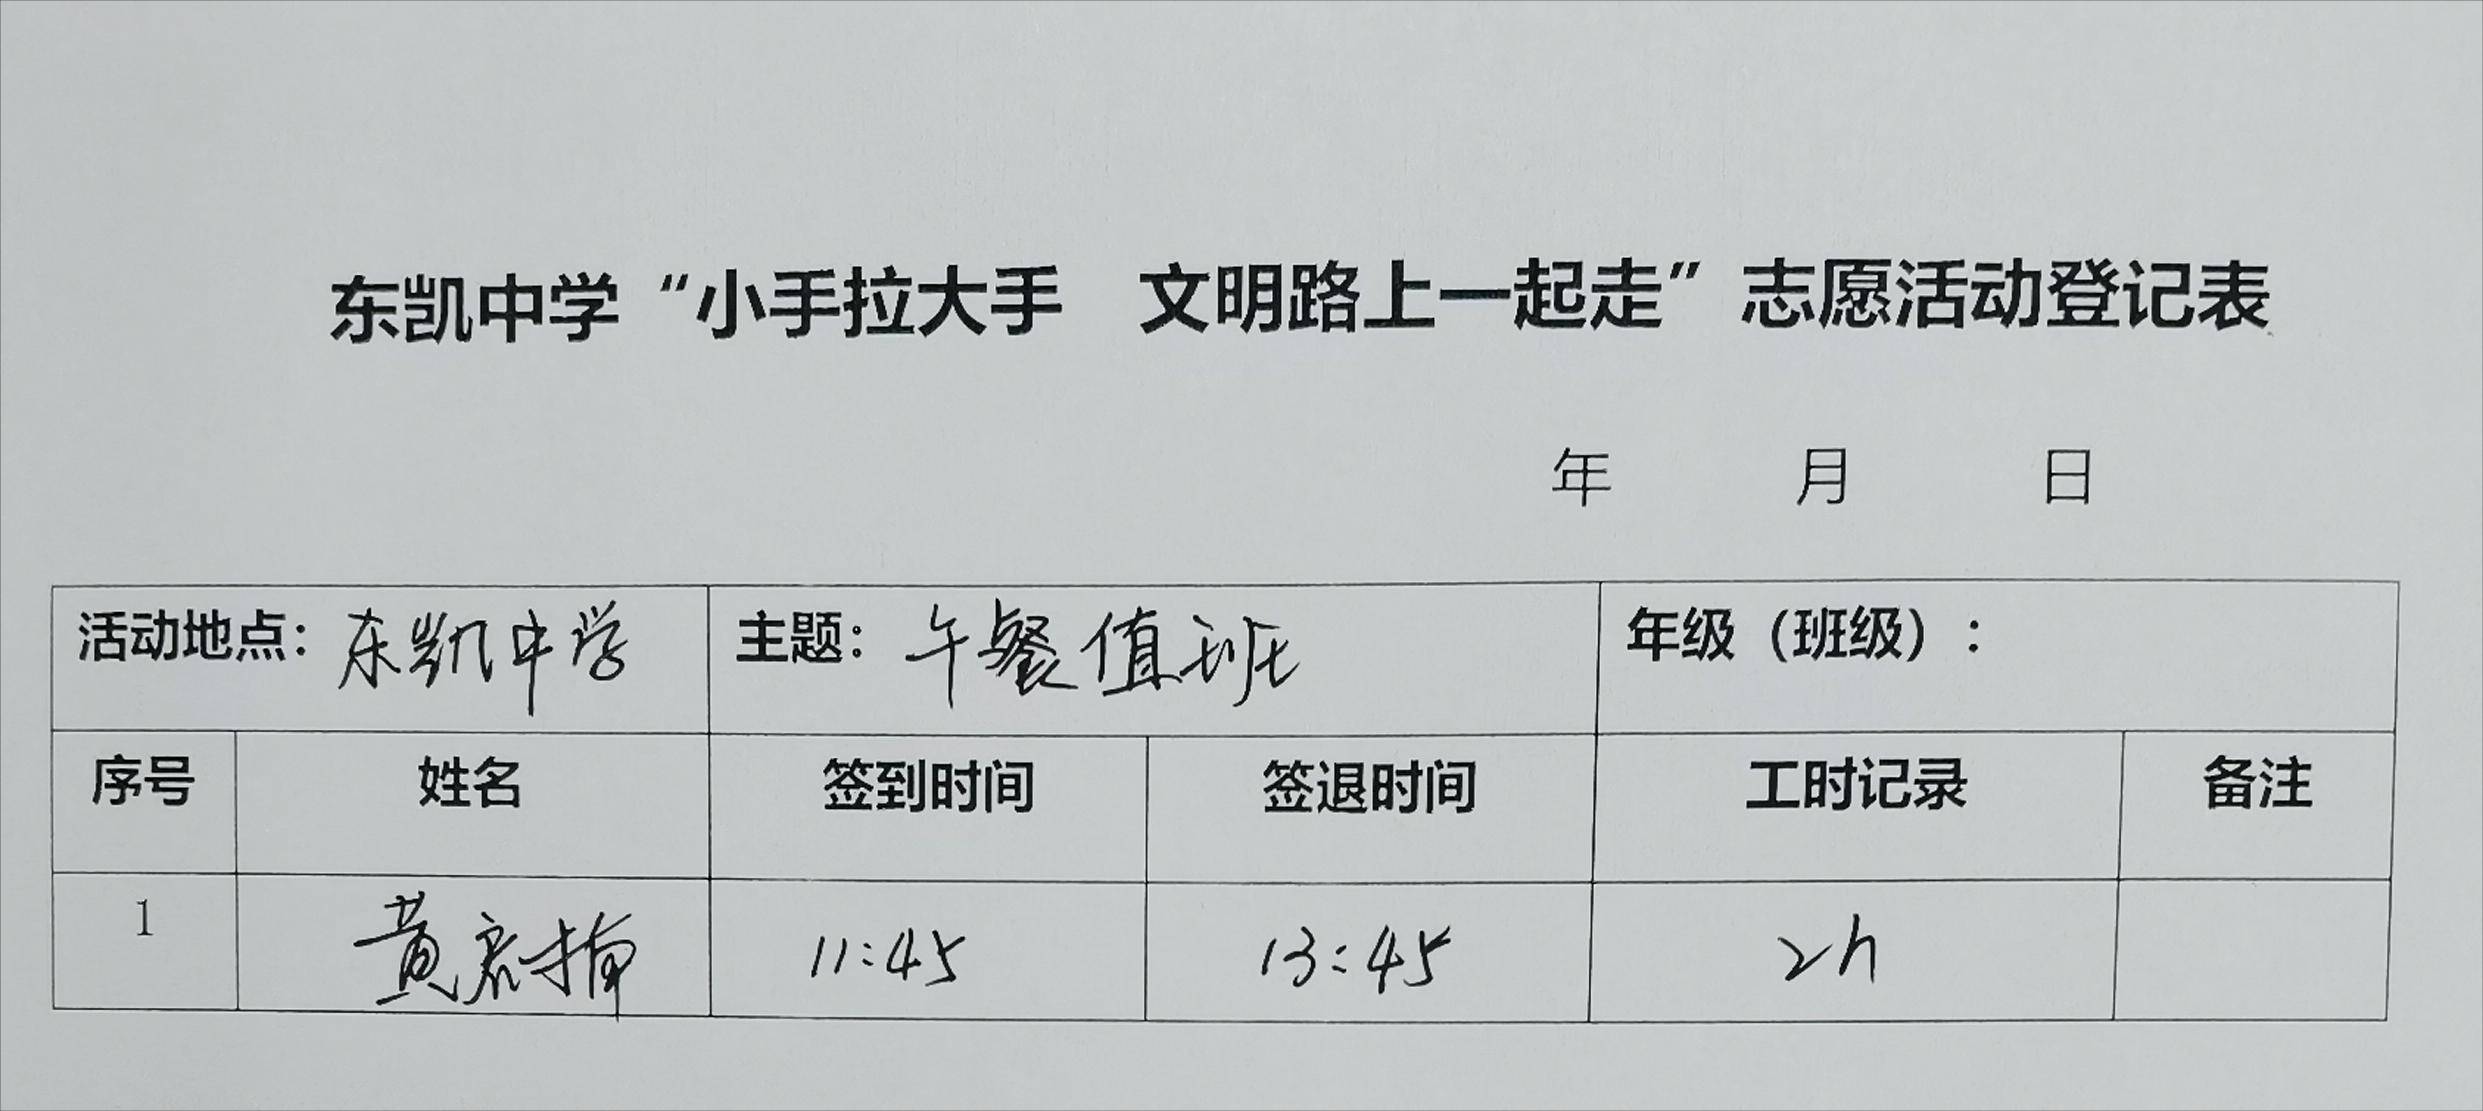 东凯中学“小手拉大手 文明路上一起走”志愿活动登记表
年 月 日
活动地点：东凯中学 主题：午餐值班 年级（班级）：
序号 姓名 签到时间 签退时间 工时记录 备注
1 黄 11:45 13:45 2h